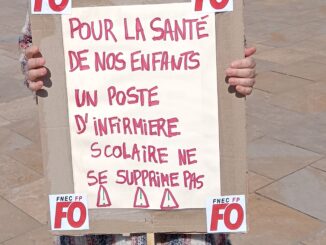 FO
FO
POUR LA SANTÉ
DE NOS ENFANTS
UN POSTE
D'INFIRMIERE
SCOLAIRE NE
SE SUPPRIME PAS
FNEC FP
FO
FNEC FP
FO